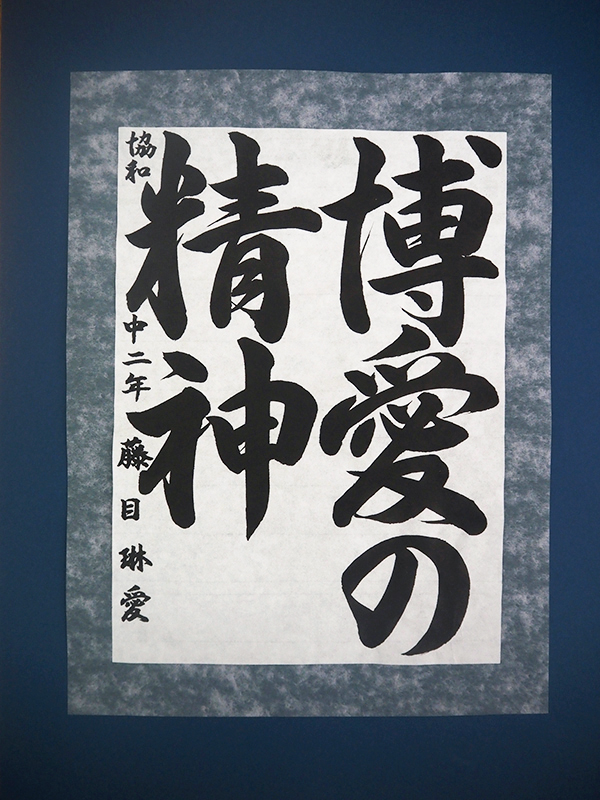 博愛の
精神
協和 中二年 藤目琳愛